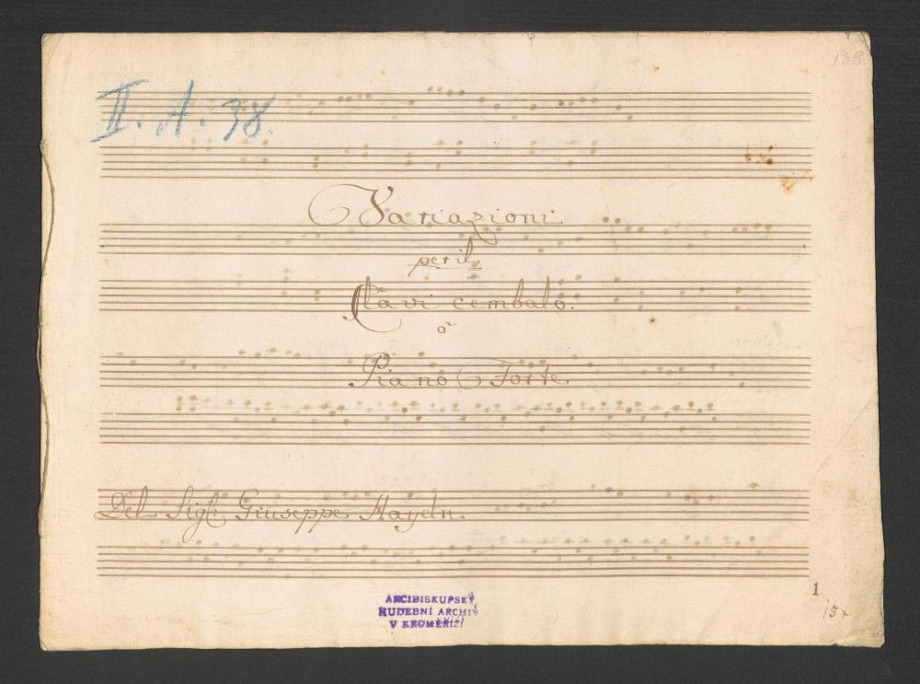 138
II. A. 38.
Variazioni
per il
Clavi cembalo.
o
Piano Forte
Del Sigl: Giuseppe Haydn.
1
ARCIBISKUPSKÝ
HUDEBNÍ ARCHIV
V KROMĚŘÍŽI